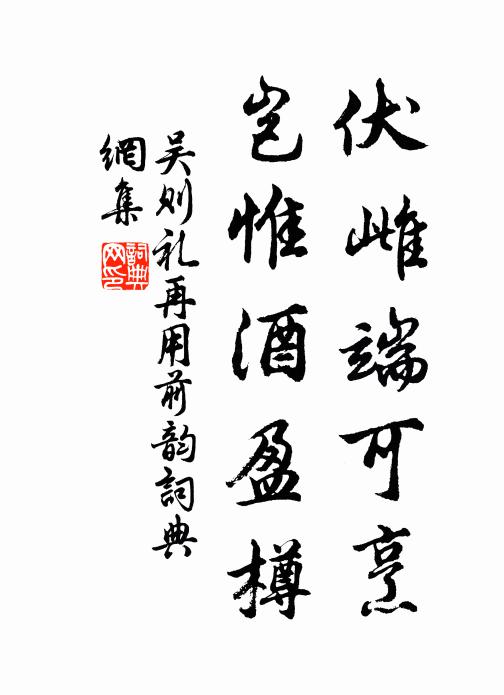 伏雌端可烹
岂惟酒盈樽
吴则礼再用前韵词典
網集
詞典網印